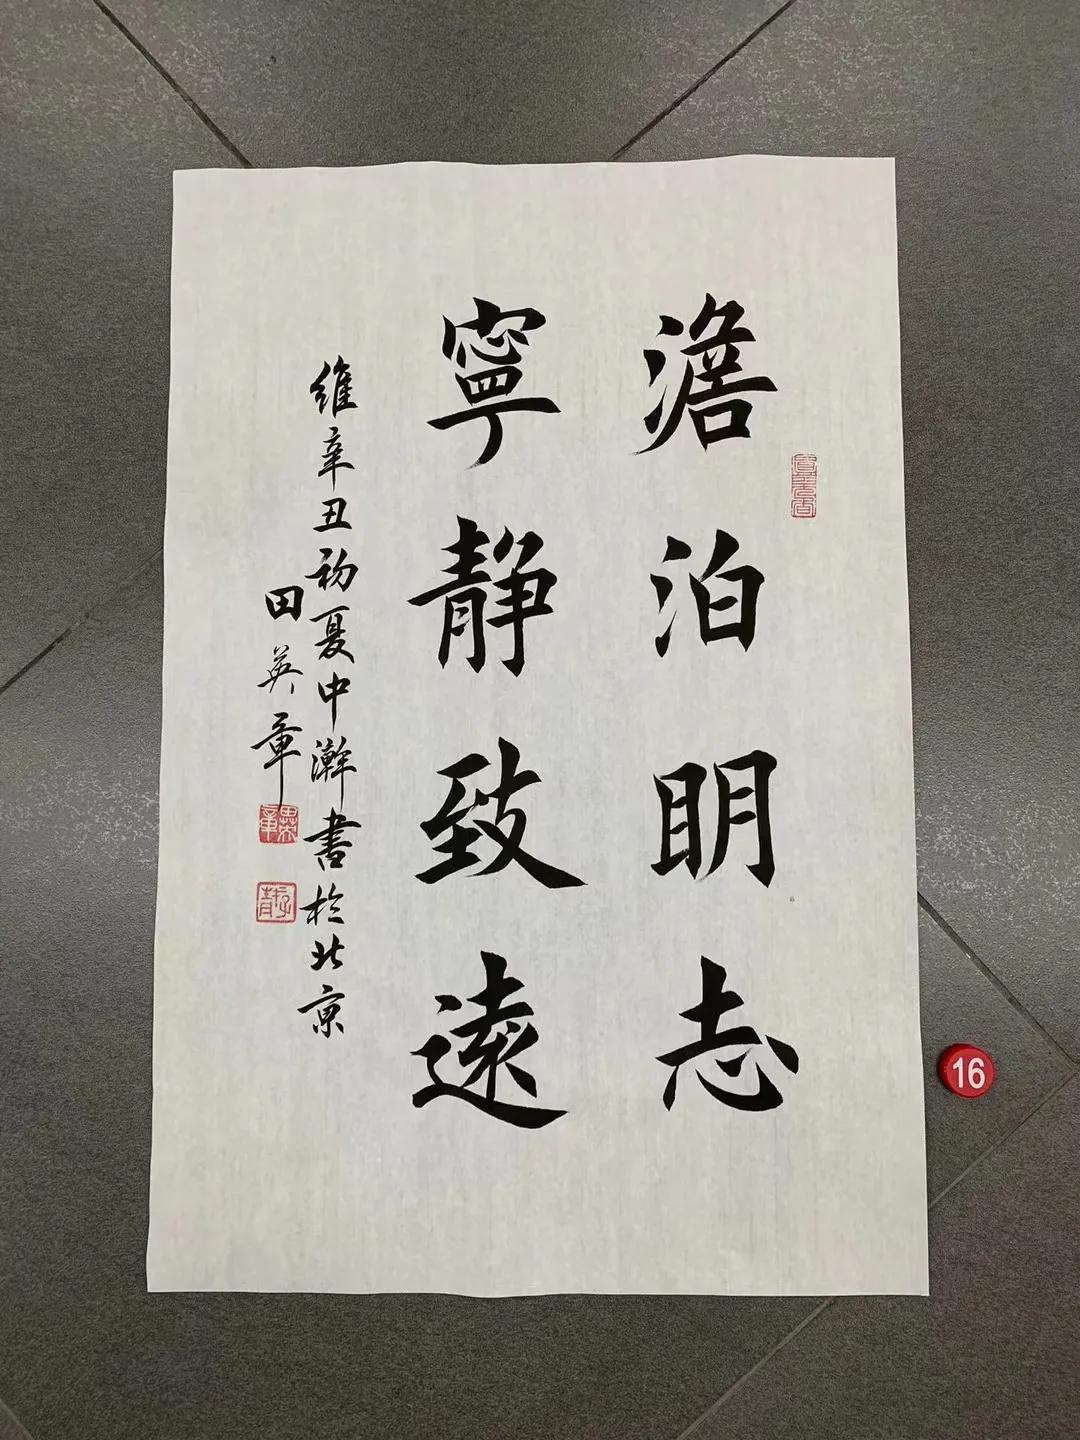 澹泊明志
寧靜致遠
維辛丑初夏中澣書於北京
田英章
16